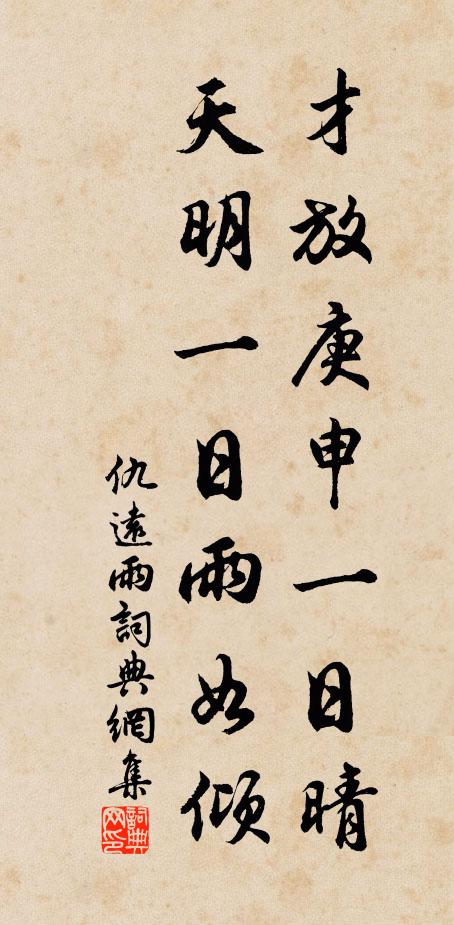 才放庚申一日晴
天明一日雨如傾
仇遠雨詞典網集
詞典网印